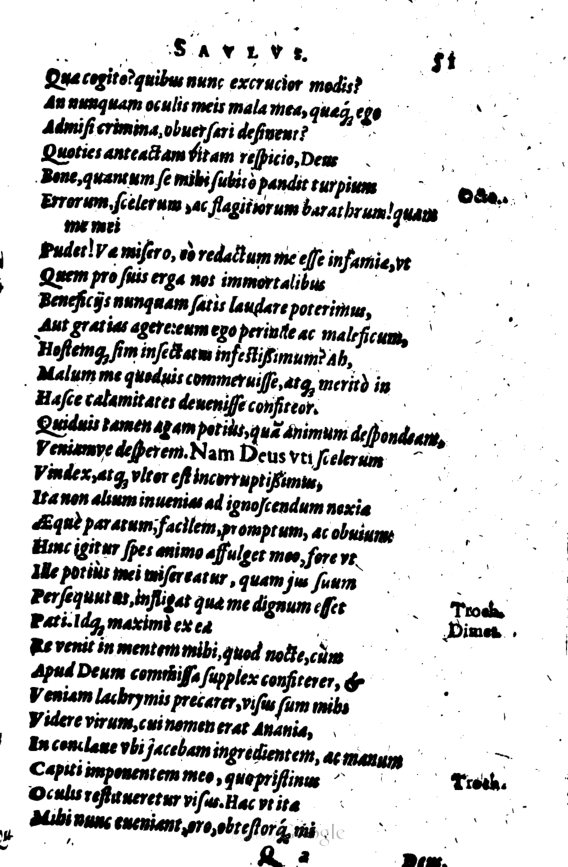 SAVLVS. 51
Quæ cogito? quibus nunc excrucior modis?
An nunquam oculis meis mala mea, quæq́; ego
Admisi crimina, obuersari desinent?
Quoties anteactam vitam respicio, Deus
Bone, quantum se mihi subitò pandit turpium
Errorum, scelerum, ac flagitiorum barathrum! quam Octo..
me mei
Pudet! Væ misero, eò redactum me esse infamiæ, vt
Quem pro suis erga nos immortalibus
Beneficijs nunquam satis laudare poterimus,
Aut gratias agere: eum ego perinde ac maleficum,
Hostemq; sim insectatus infestißimum? Ah,
Malum me quoduis commeruisse, atq; meritò in
Hasce calamitates deuenisse confiteor.
Quiduis tamen agam potiùs, quã animum despondeam,
Veniamve desperem. Nam Deus vti scelerum
Vindex, atq; vltor est incorruptißimus,
Ita non alium inuenias ad ignoscendum noxia
Æquè paratum, facilem, promptum, ac obuium
Hinc igitur spes animo affulget meo, fore vt
Ille potiùs mei misereatur, quam jus suum
Persequutus, infligat quæ me dignum esset Troch.
Pati. Idq; maximè ex ea Dimet.
Re venit in mentem mihi, quod nocte, cùm
Apud Deum commissa supplex confiterer, &
Veniam lachrymis precarer, visus sum mihi
Videre virum, cui nomen erat Anania,
In conclaue vbi jacebam ingredientem, ac manum
Capiti imponentem meo, quo pristinus Troch.
Oculis restitueretur visus. Hæc vt ita
Mihi nunc eueniant, oro, obtestorq́; mi
Q 2 Dem.